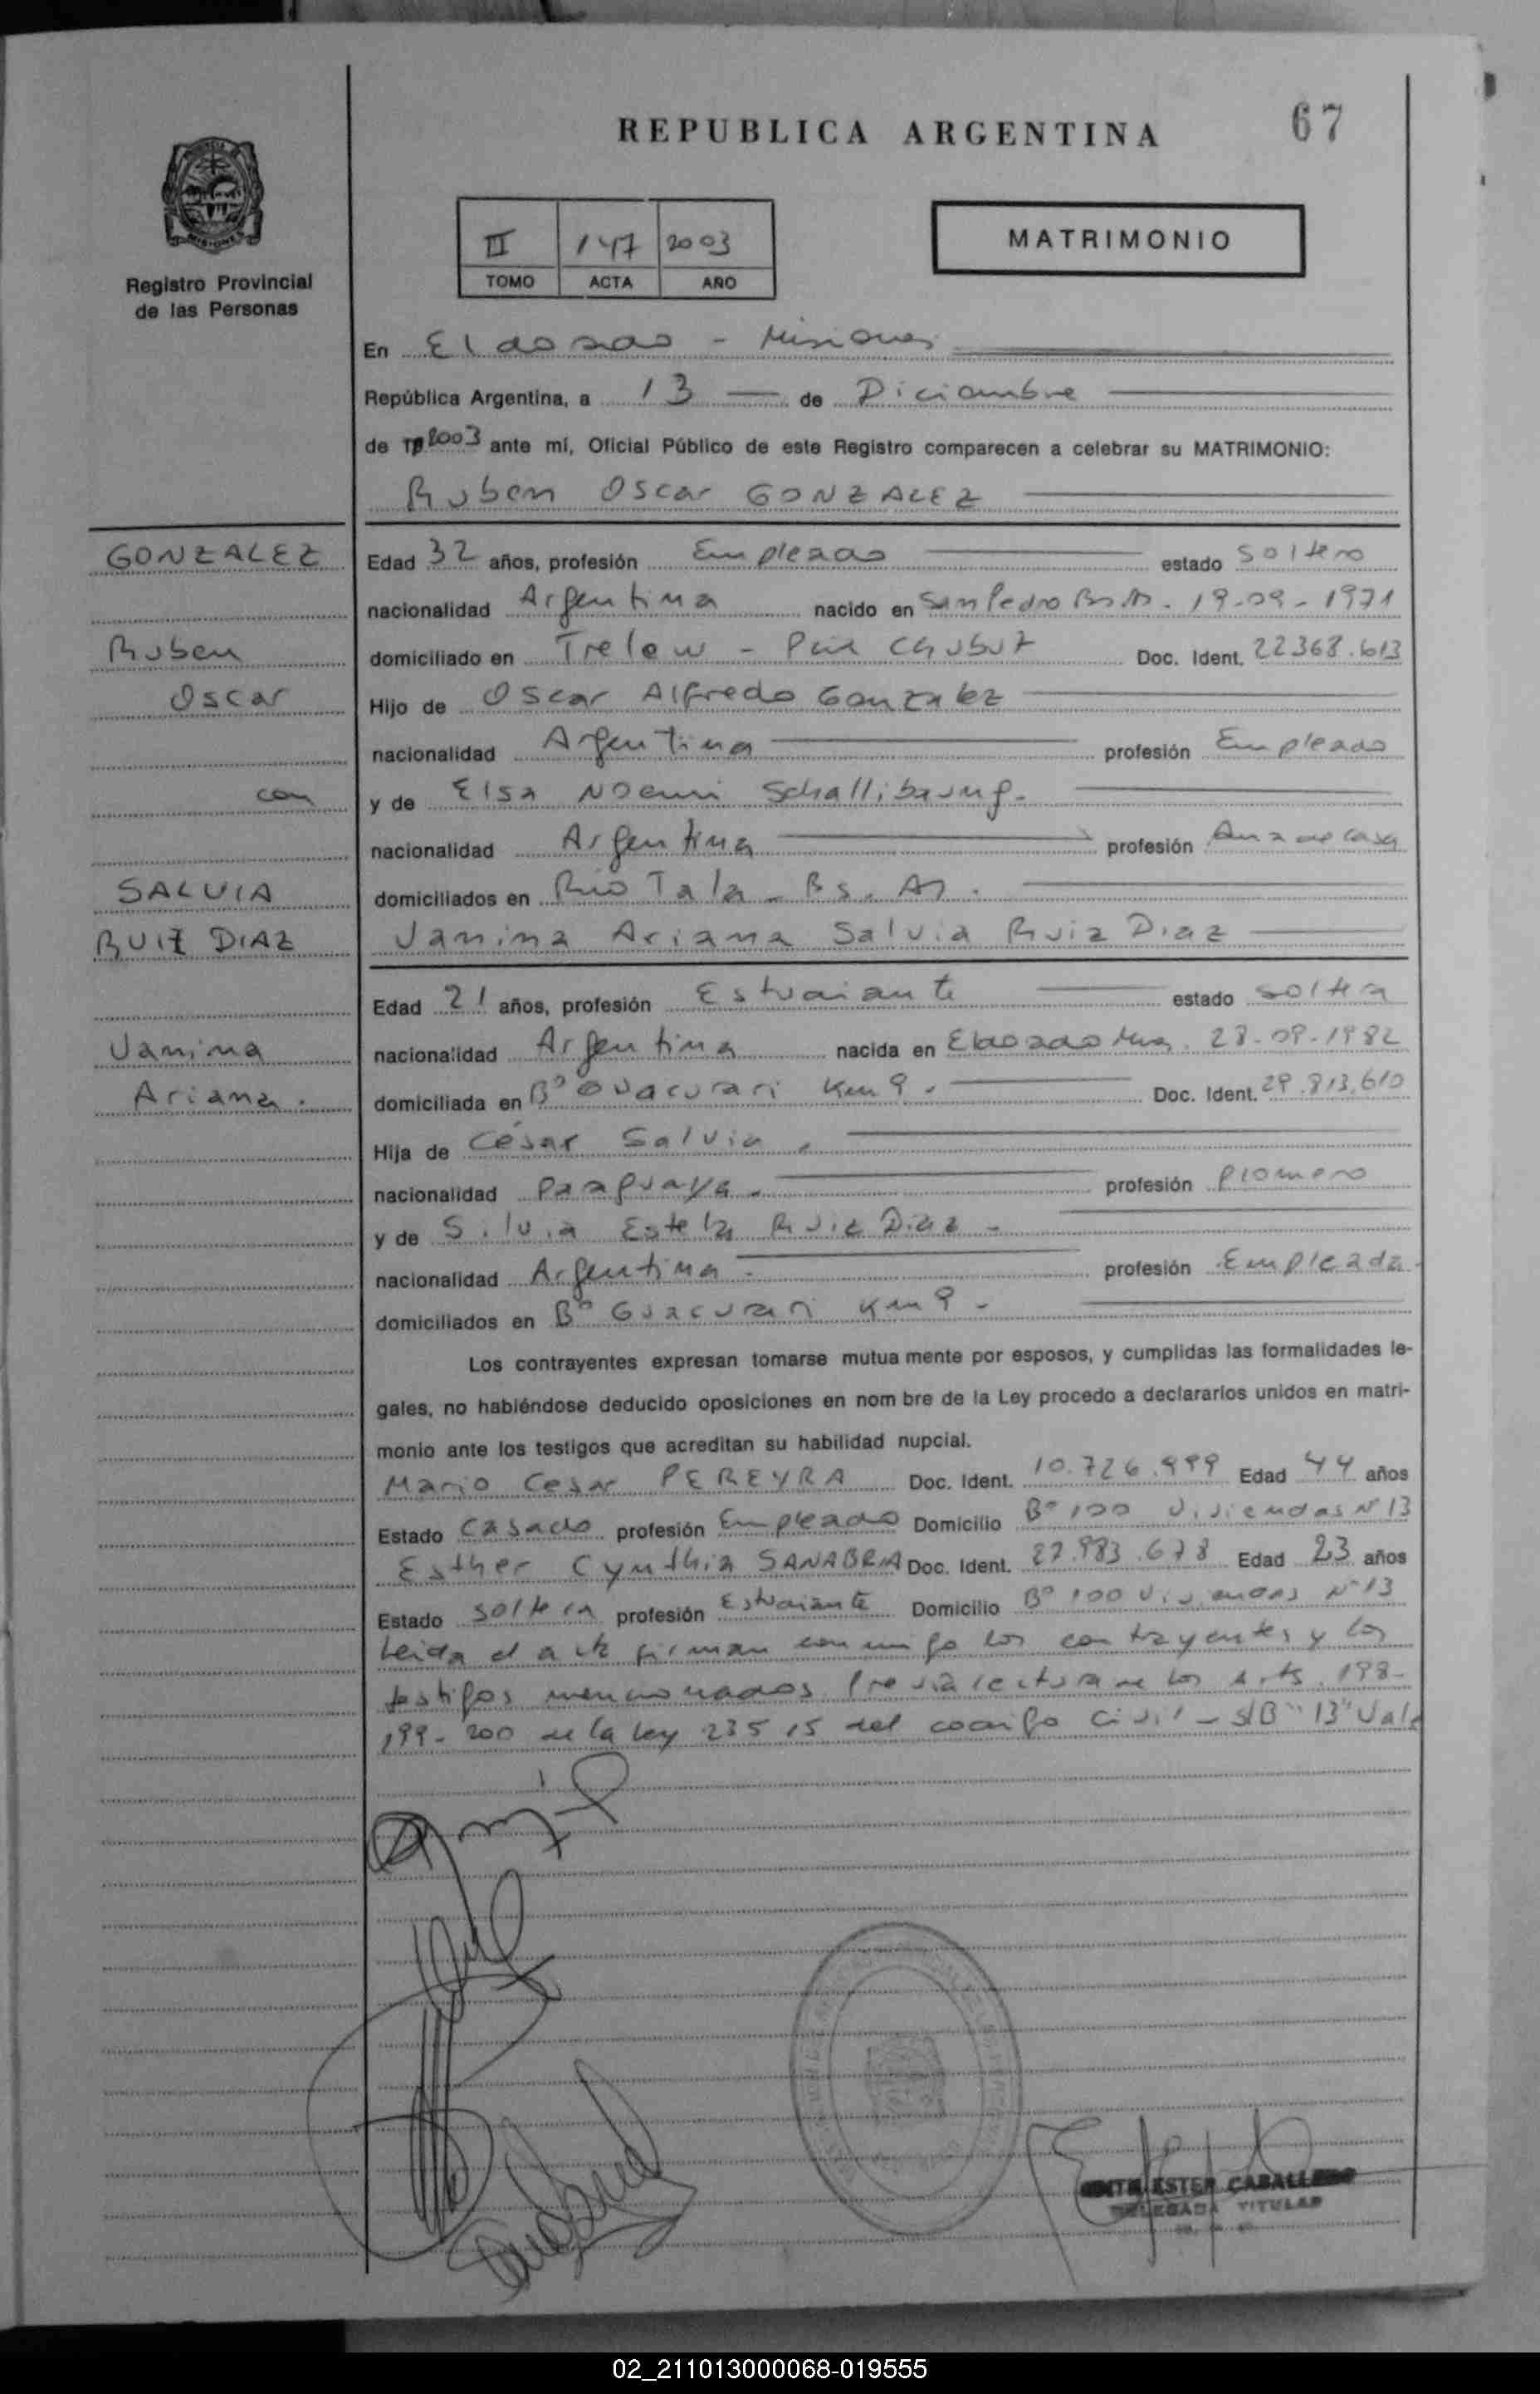 REPUBLICA ARGENTINA
67
Registro Provincial
de las Personas
II 147 2003
TOMO ACTA AÑO
MATRIMONIO
En Eldorado - Misiones
República Argentina, a 13 de Diciembre
de 2003 ante mí, Oficial Público de este Registro comparecen a celebrar su MATRIMONIO:
Ruben Oscar GONZALEZ
GONZALEZ
Ruben
Oscar
con
SALVIA
RUIZ DIAZ
Vanina
Ariana.
Edad 32 años, profesión Empleado estado Soltero
nacionalidad Argentina nacido en San Pedro Bs As. 19-09-1971
domiciliado en Trelew - Chubut Doc. Ident. 22368.613
Hijo de Oscar Alfredo Gonzalez
nacionalidad Argentina profesión Empleado
y de Elsa Noemi Schallibaung.
nacionalidad Argentina profesión Ama de casa
domiciliados en Rio Tala - Bs. As.
Vanina Ariana Salvia Ruiz Diaz
Edad 21 años, profesión Estudiante estado soltera
nacionalidad Argentina nacida en Eldorado Mnes. 28-09-1982
domiciliada en B° Guacurari Km 9. Doc. Ident. 29.813.610
Hija de César Salvia.
nacionalidad Paraguaya. profesión Plomero
y de Silvia Estela Ruiz Diaz -
nacionalidad Argentina. profesión Empleada.
domiciliados en B° Guacurari Km 9 -
Los contrayentes expresan tomarse mutua mente por esposos, y cumplidas las formalidades le-
gales, no habiéndose deducido oposiciones en nom bre de la Ley procedo a declararlos unidos en matri-
monio ante los testigos que acreditan su habilidad nupcial.
Mario Cesar PEREYRA Doc. Ident. 10.726.999 Edad 44 años
Estado Casado profesión Empleado Domicilio B° 100 Viviendas N° 13
Esther Cynthia SANABRIA Doc. Ident. 27.983.678 Edad 23 años
Estado soltera profesión Estudiante Domicilio B° 100 Viviendas N° 13
Leida el acta firman conmigo los contrayentes y los
testigos mencionados. Previa lectura de los Arts. 198-
199-200 de la Ley 23515 del codigo Civil - S/B "13" Vale
ESTER CABALLERO
DELEGADA TITULAR
02_211013000068-019555